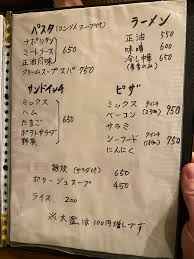 パスタ(コンソメスープ付)
ナポリタン
ミートソース 650
正油風味
クリームスープスパ 750
ラーメン
正油 550
味噌 600
冷し中華 650
(夏季のみ)
サンドイッチ
ミックス
ハム
たまご 450
ポテトサラダ
野菜
ピザ
ミックス
ベーコン
サラミ
シーフード
にんにく
750
950
雑炊 650
ポタージュスープ 450
ライス 200
※大盛は100円増しです